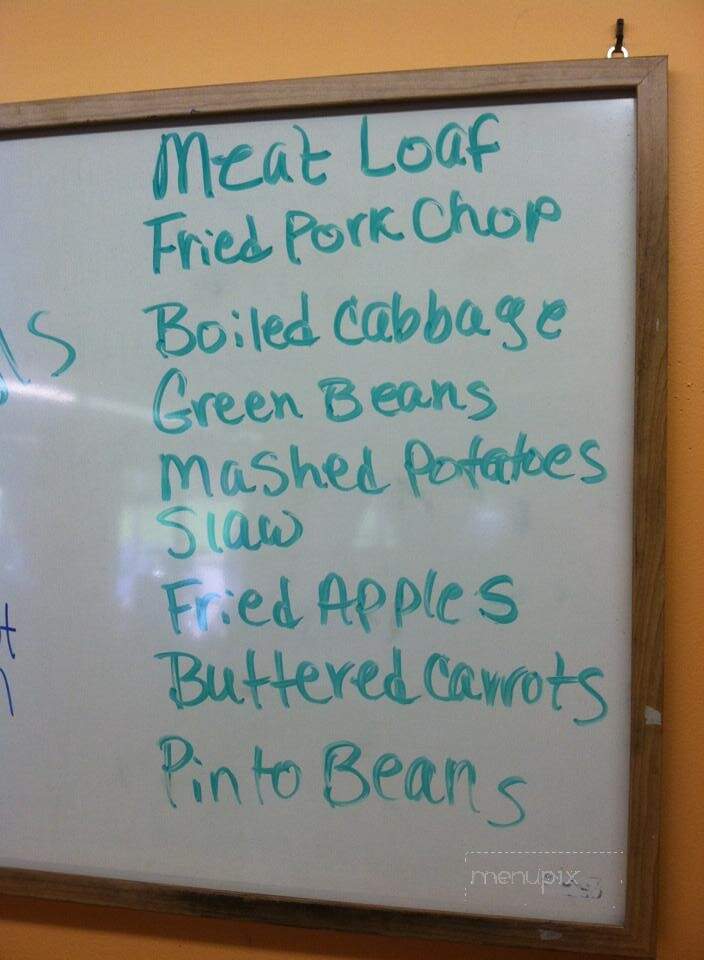 Meat Loaf
Fried Pork Chop
Boiled Cabbage
Green Beans
Mashed Potatoes
Slaw
Fried Apples
Buttered Carrots
Pinto Beans
menupix